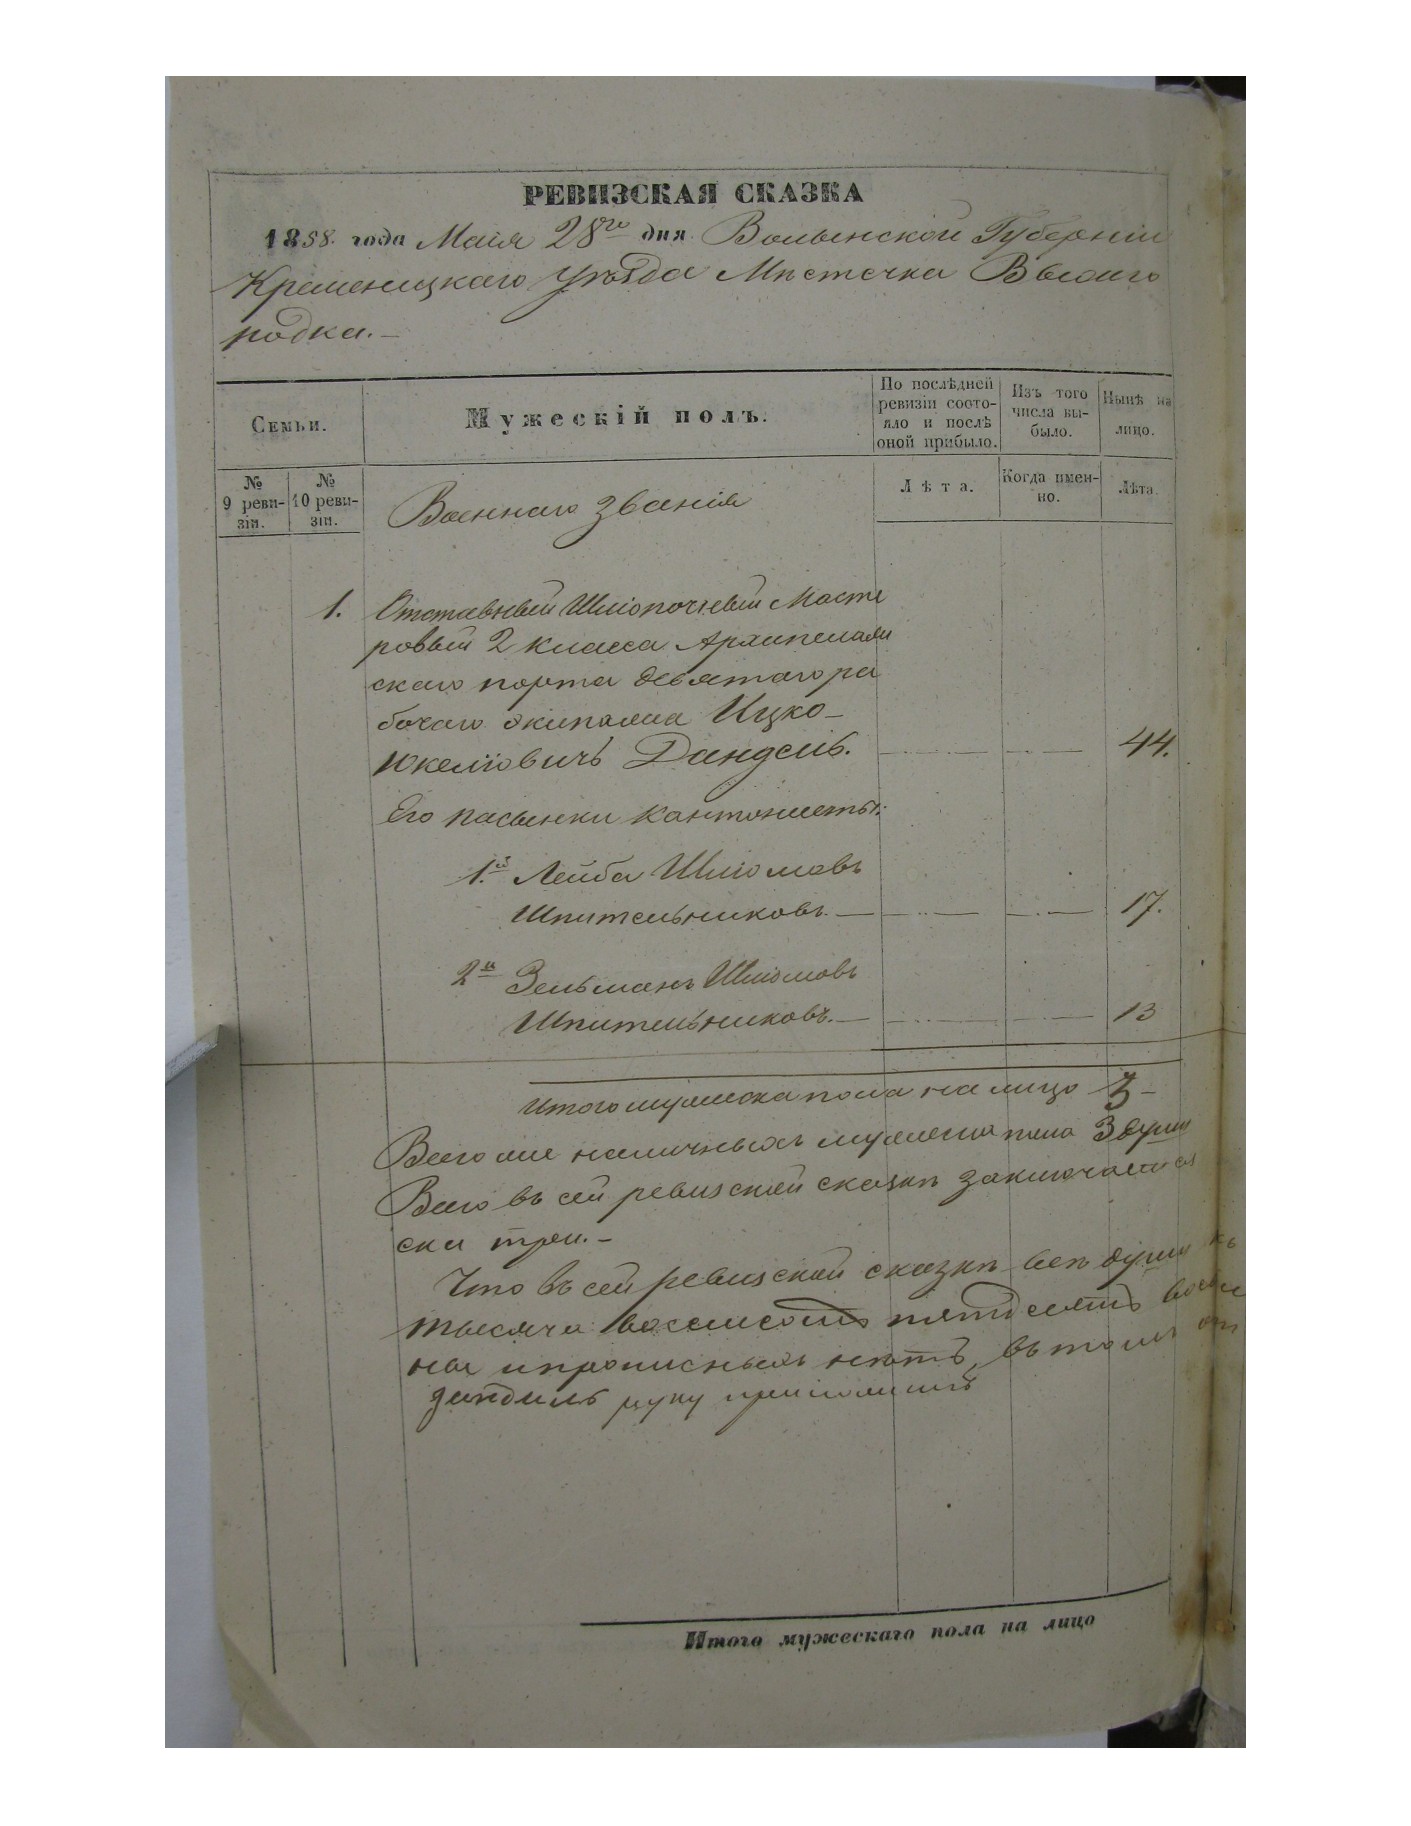 РЕВИЗСКАЯ СКАЗКА
1858. года Маія 28го дня Волынской Губерніи
Кременецкаго Уѣзда Мѣстечка Высого
родка.—
Семьи.
Мужескій полъ.
По послѣдней
ревизіи состо-
яло и послѣ
оной прибыло.
Изъ того
числа вы-
было.
Нынѣ на
лицо.
№
9 реви-
зіи.
№
10 реви-
зіи.
Военнаго званія
Лѣта.
Когда имен-
но.
Лѣта.
1. Отставный Шлюпочный Масте
ровый 2 класса Архипелаги
скаго порта девятаго ра
бочаго экипажа Ицко—
Юкелiовичъ Дандель. 44.
Его пасынки кантонисты:
1.й Лейба Шліомовъ
Шпительниковъ.— 17.
2й Зельманъ Шліомовъ
Шпительниковъ.— 13
Итого мужеска пола на лицо 3—
Всего же наличныхъ мужеска пола 3 души
Всего въ сей ревизской сказкѣ заключается
ска три.—
Что въ сей ревизской сказкѣ всѣ души
тысяча восемсотъ пятдесятъ
и прописныхъ нѣтъ, въ томъ
руку приложилъ
Итого мужескаго пола на лицо